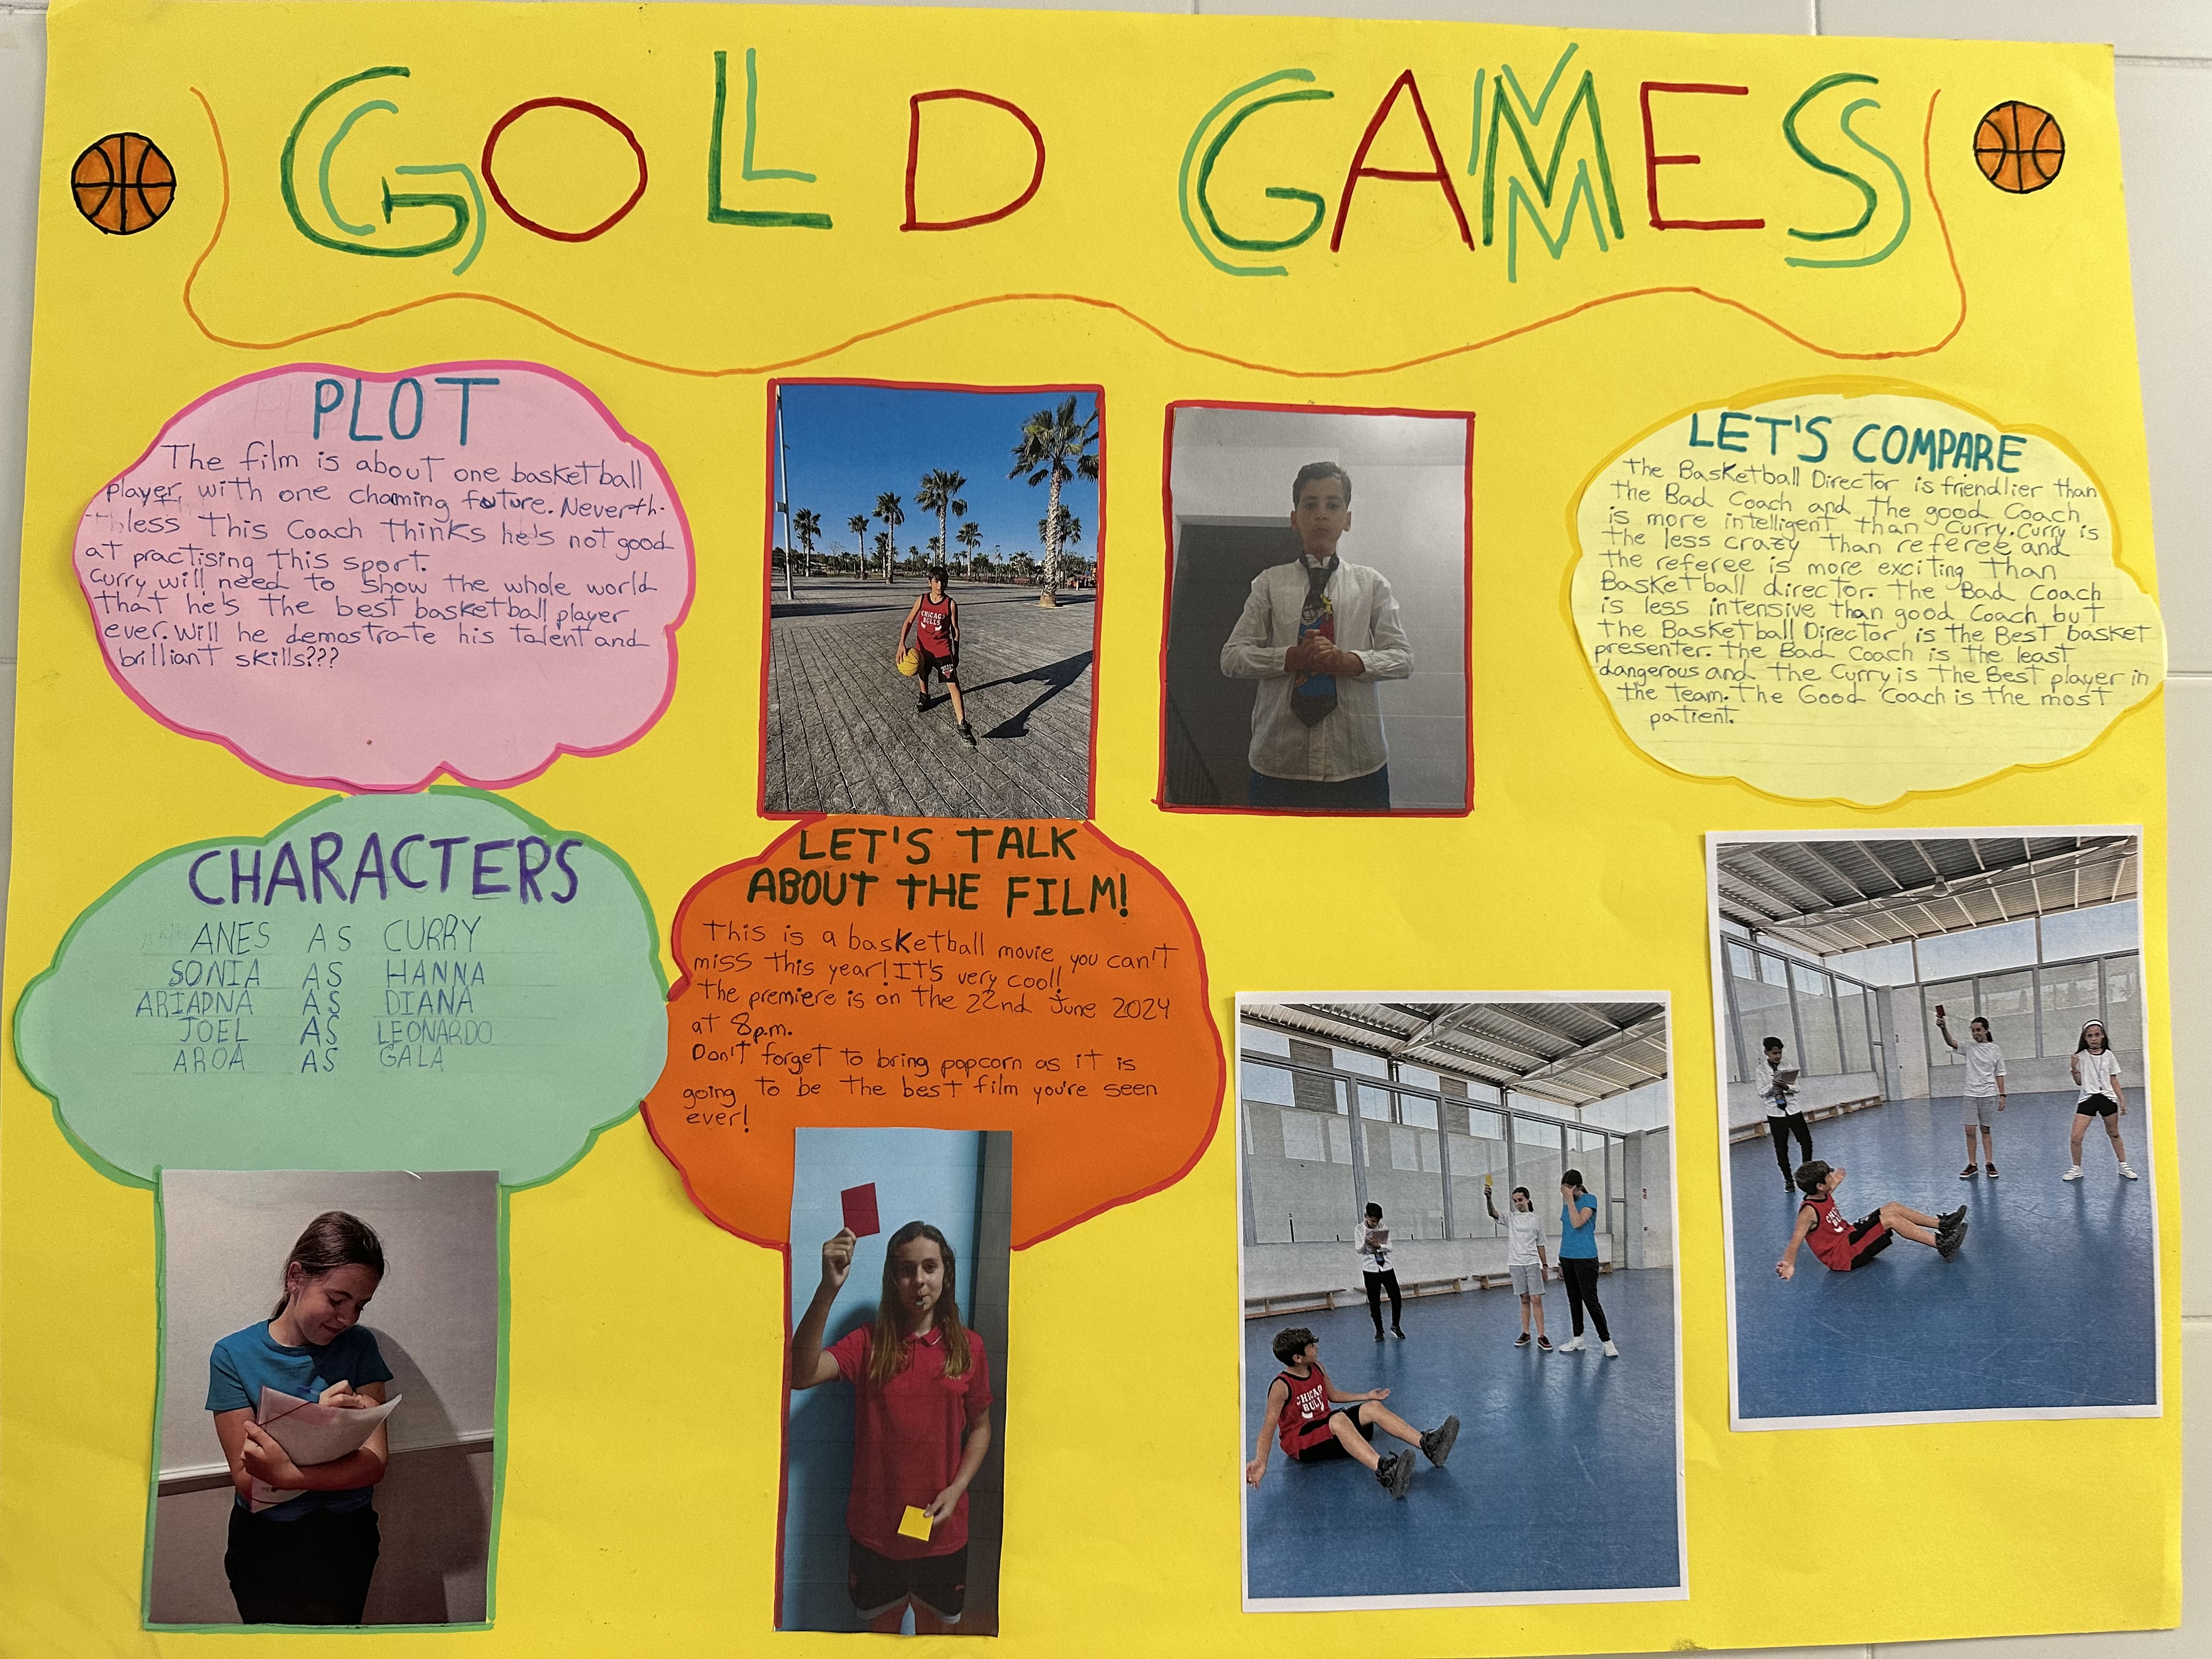 GOLD GAMES
PLOT
The film is about one basketball
player, with one chaming future. Neverth-
less this Coach thinks he's not good
at practising this sport.
Curry will need to show the whole world
that he's the best basketball player
ever. Will he demostrate his talent and
brilliant skills???
LET'S COMPARE
the Basketball Director is friendlier than
the Bad Coach and the good Coach
is more intelligent than Curry. Curry is
the less crazy than referee and
the referee is more exciting than
Basketball director. the Bad Coach
is less intensive than good Coach but
the Basketball Director is the Best basket
presenter. the Bad Coach is the least
dangerous and the Curry is the Best player in
the team. the Good Coach is the most
patient.
CHARACTERS
ANES AS CURRY
SONIA AS HANNA
ARIADNA AS DIANA
JOEL AS LEONARDO
AROA AS GALA
LET'S TALK
ABOUT THE FILM!
This is a basketball movie you can't
miss this year! It's very cool!
the premiere is on the 22nd June 2024
at 8p.m.
Don't forget to bring popcorn as it is
going to be the best film you're seen
ever!
CHICAGO
BULLS
CHICAGO
BULLS
CHICAGO
BULLS